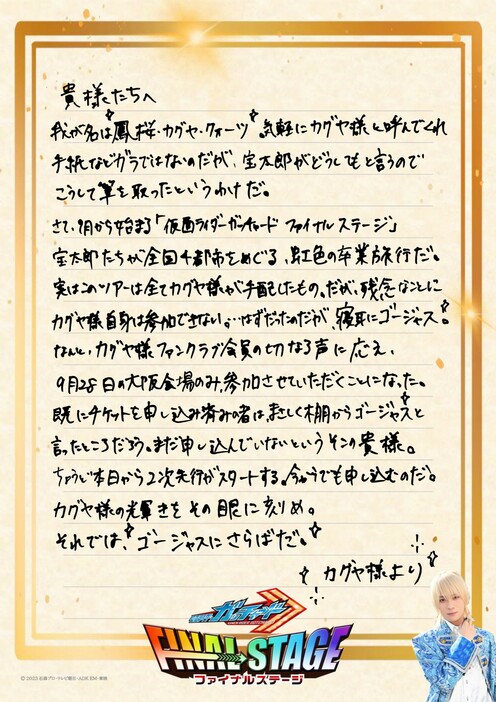 貴様たちへ
我が名は鳳桜・カグヤ・クォーツ 気軽にカグヤ様と呼んでくれ
手紙などガラではないのだが、宝太郎がどうしてもと言うので
こうして筆を取ったというわけだ。
さて、9月から始まる「仮面ライダーガッチャード ファイナルステージ」
宝太郎たちが全国4都市をめぐる、虹色の卒業旅行だ。
実はこのツアーは全てカグヤ様が手配したもの。だが、残念なことに
カグヤ様自身は参加できない。…はずだったのだが、寝耳にゴージャス!
なんと、カグヤ様ファンクラブ会員の切なる声に応え、
9月28日の大阪会場のみ、参加させていただくことになった。
既にチケットを申し込み済みの者は、まさしく棚からゴージャスと
言ったところだろう。まだ申し込んでいないというそこの貴様。
ちょうど本日から2次先行がスタートする。今からでも申し込むのだ。
カグヤ様の光輝きをその眼に刻め。
それでは、ゴージャスにさらばだ。
カグヤ様より
仮面ライダー ガッチャード
FINAL STAGE
ファイナルステージ
© 2023 石森プロ・テレビ朝日・ADK EM・東映